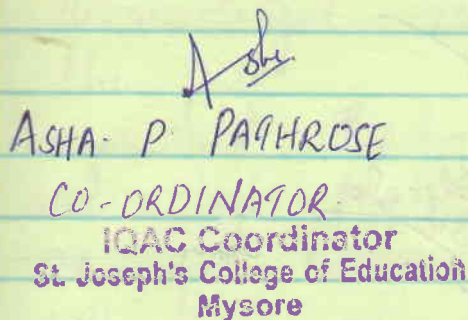 Asha
ASHA. P. PATHROSE
CO-ORDINATOR.
IQAC Coordinator
St. Joseph's College of Education
Mysore